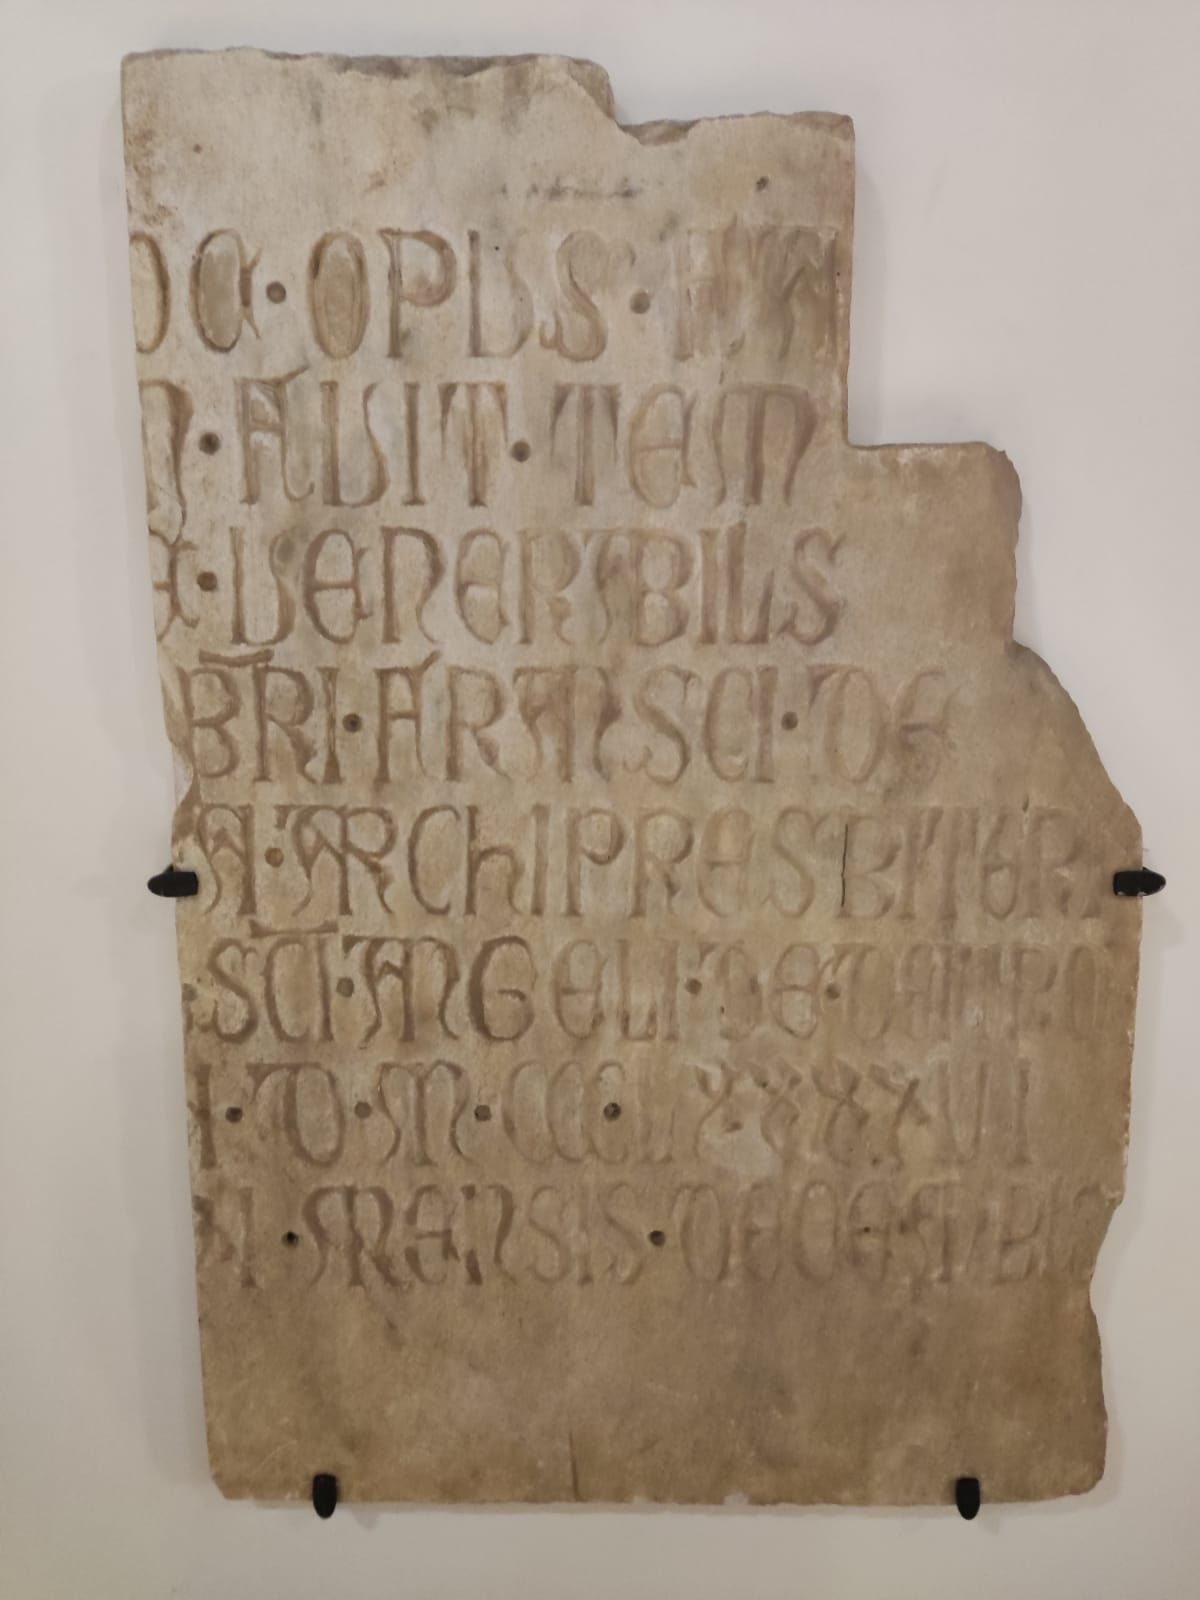 OC · OPUS ·
· AUIT · TEM
· VENERABILS
BRI · FRANSCI · DE
A · ARCHIPRESBITERI
· SCI · ANGELI · DE ·
I · D · M · CCC · LXXXXVII
· MENSIS · DECEMBRIS